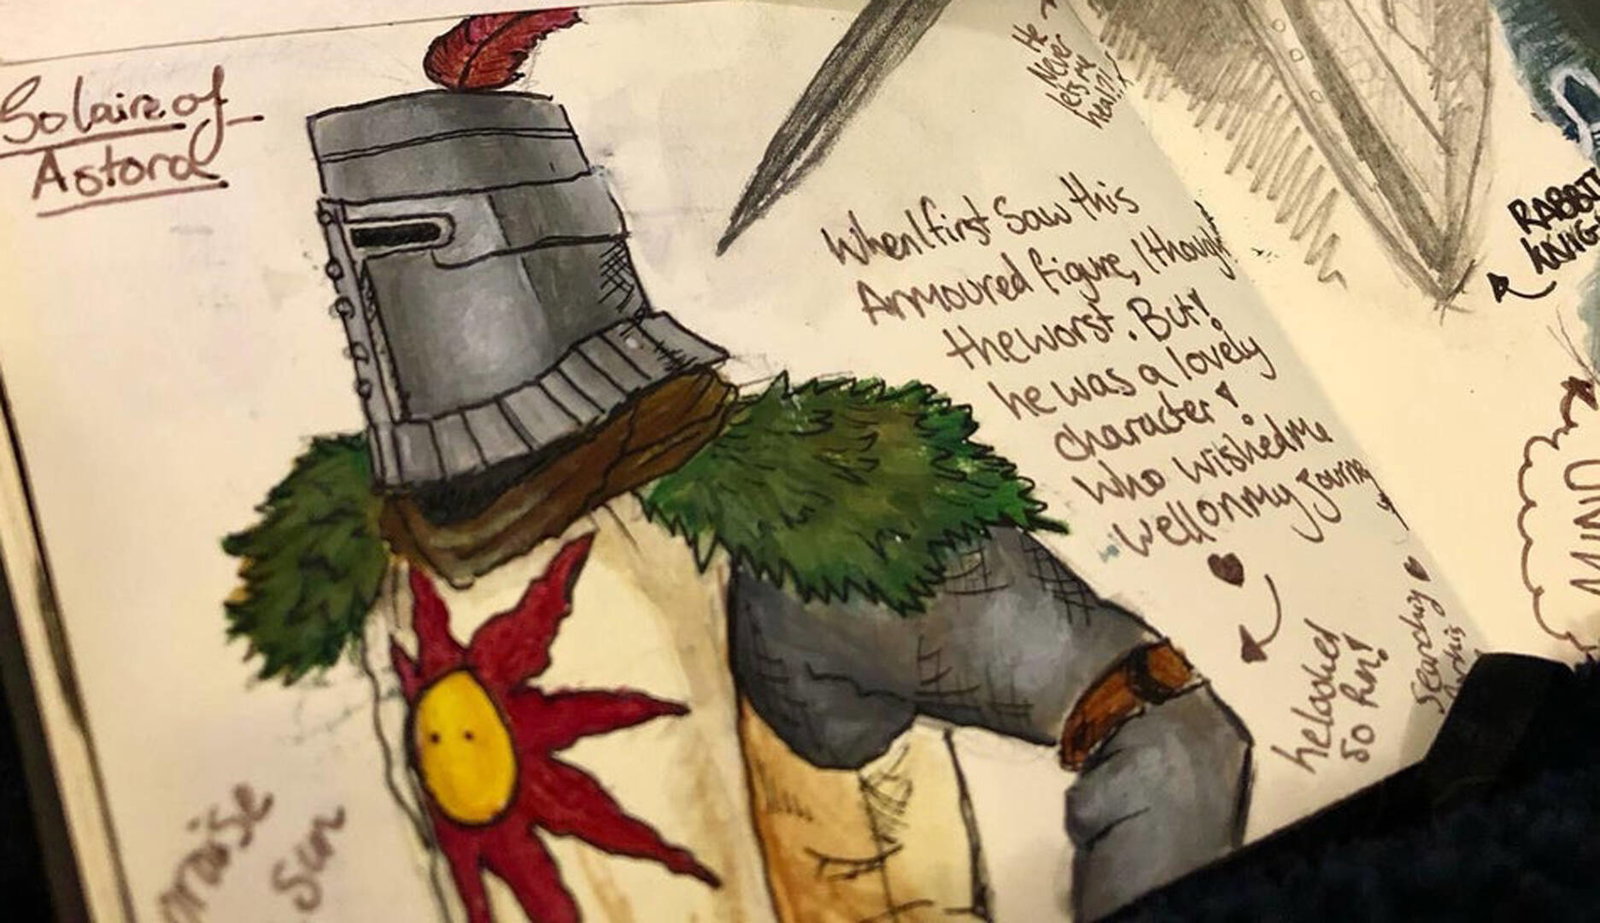 Solaire of
Astora
He
Never
lets me
heal?!!
When I first saw this
Armoured figure, I though
the worst. But!
he was a lovely
character!
who wished me
well on my journ
he looked
so fun!
praise
Sun
Searching
RABBIT
MIND